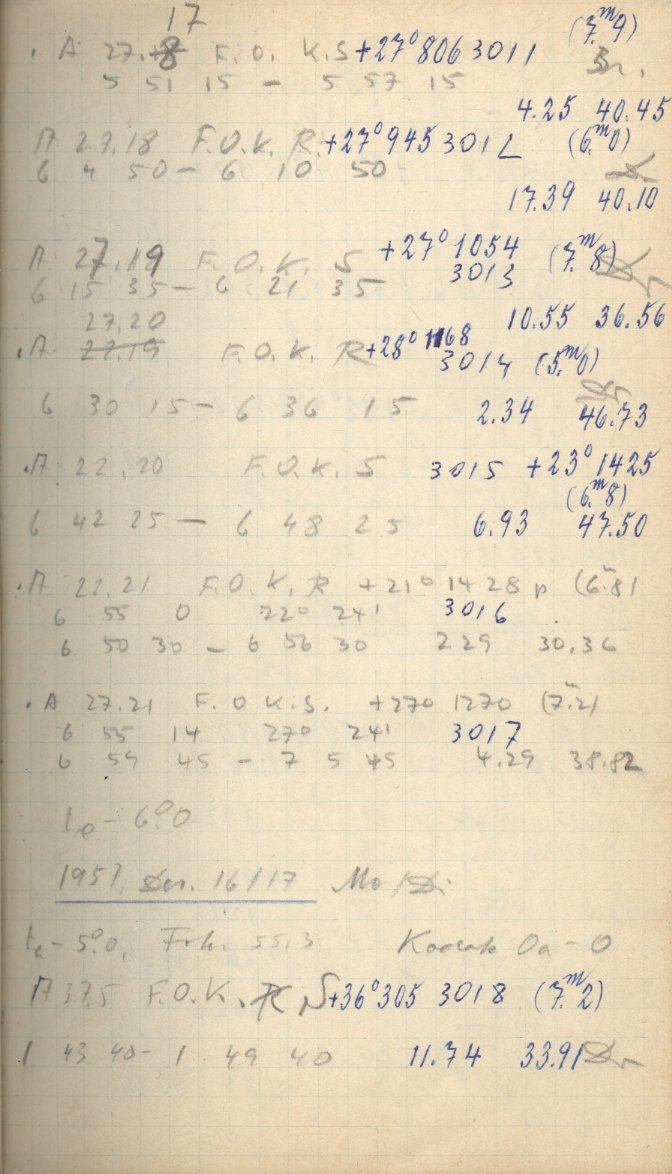 17
. A 27.8 F.O. K.S +27° 806 3011 (7.ᵐ9)
5 51 15 — 5 57 15
4.25 40.45
A 27.18 F.O.K. R. +27° 945 3012 (6.ᵐ0)
6 4 50 — 6 10 50
17.39 40.10
A 27.19 F.O.K. S +27° 1054 (7.ᵐ8)
3013
6 15 35 — 6 21 35
27.20 10.55 36.56
. A 27.19 F.O.K. R +28° 1168
3014 (5.ᵐ0)
6 30 15 — 6 36 15 2.34 46.73
. A 22.20 F.O.K. S 3015 +23° 1425
(6.ᵐ8)
6 42 25 — 6 48 25 6.93 47.50
. A 22.21 F.O.K. R +21° 1428 p (6.ᵐ8)
6 55 0 22° 24' 3016
6 50 30 — 6 56 30 229 30.36
. A 27.21 F.O K.S. +27° 1270 (7.ᵐ2)
6 55 14 27° 24' 3017
6 59 45 — 7 5 45 4.29 38.82
tₑ - 6°.0
1957, Dec. 16/17 Mo
- 5°.0, 55,3 Kodak Oa - O
A 37.5 F.O.K. R S +36° 305 3018 (7.ᵐ2)
1 43 40 - 1 49 40 11.74 33.91